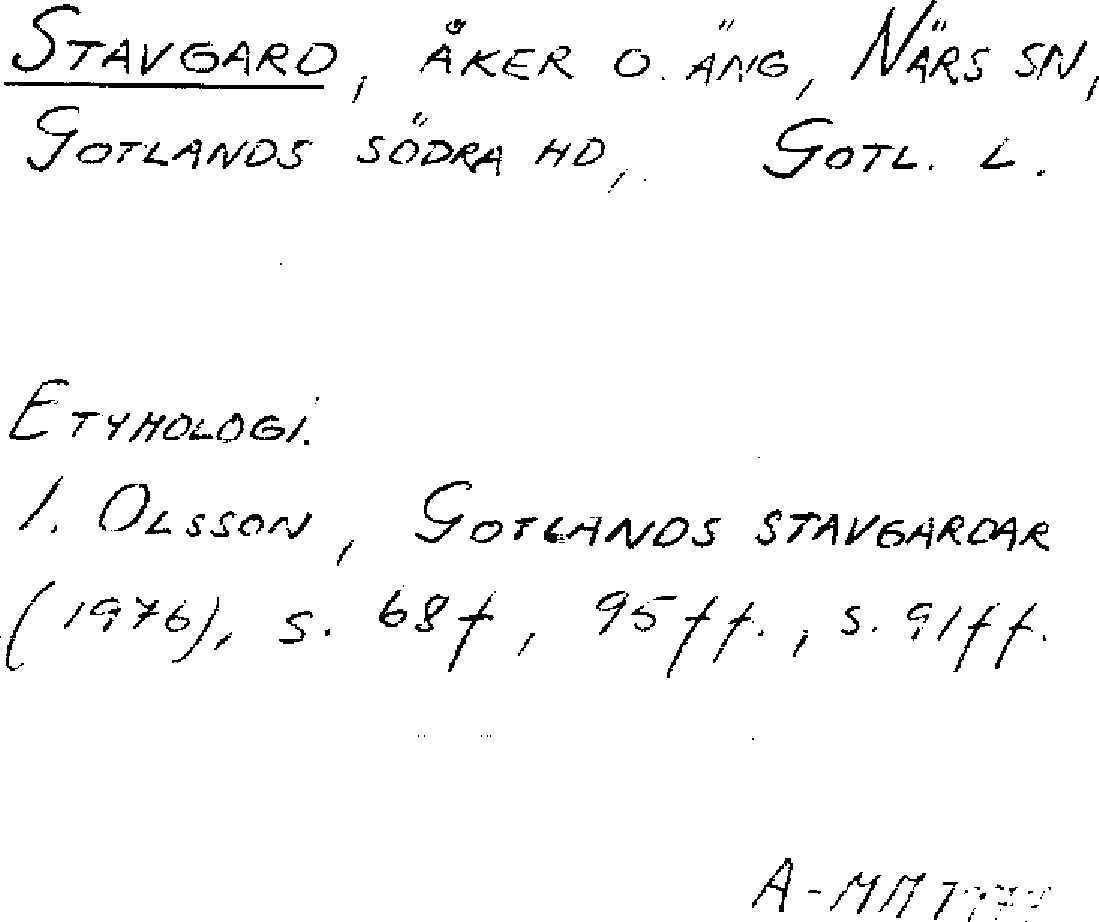 STAVGARD, ÅKER O. ÄNG, NÄRS SN,
GOTLANDS SÖDRA HD, GOTL. L.
ETYMOLOGI.
I. OLSSON, GOTLANDS STAVGARDAR
(1976), S. 68f, 95ff., S. 91ff.
A-MM